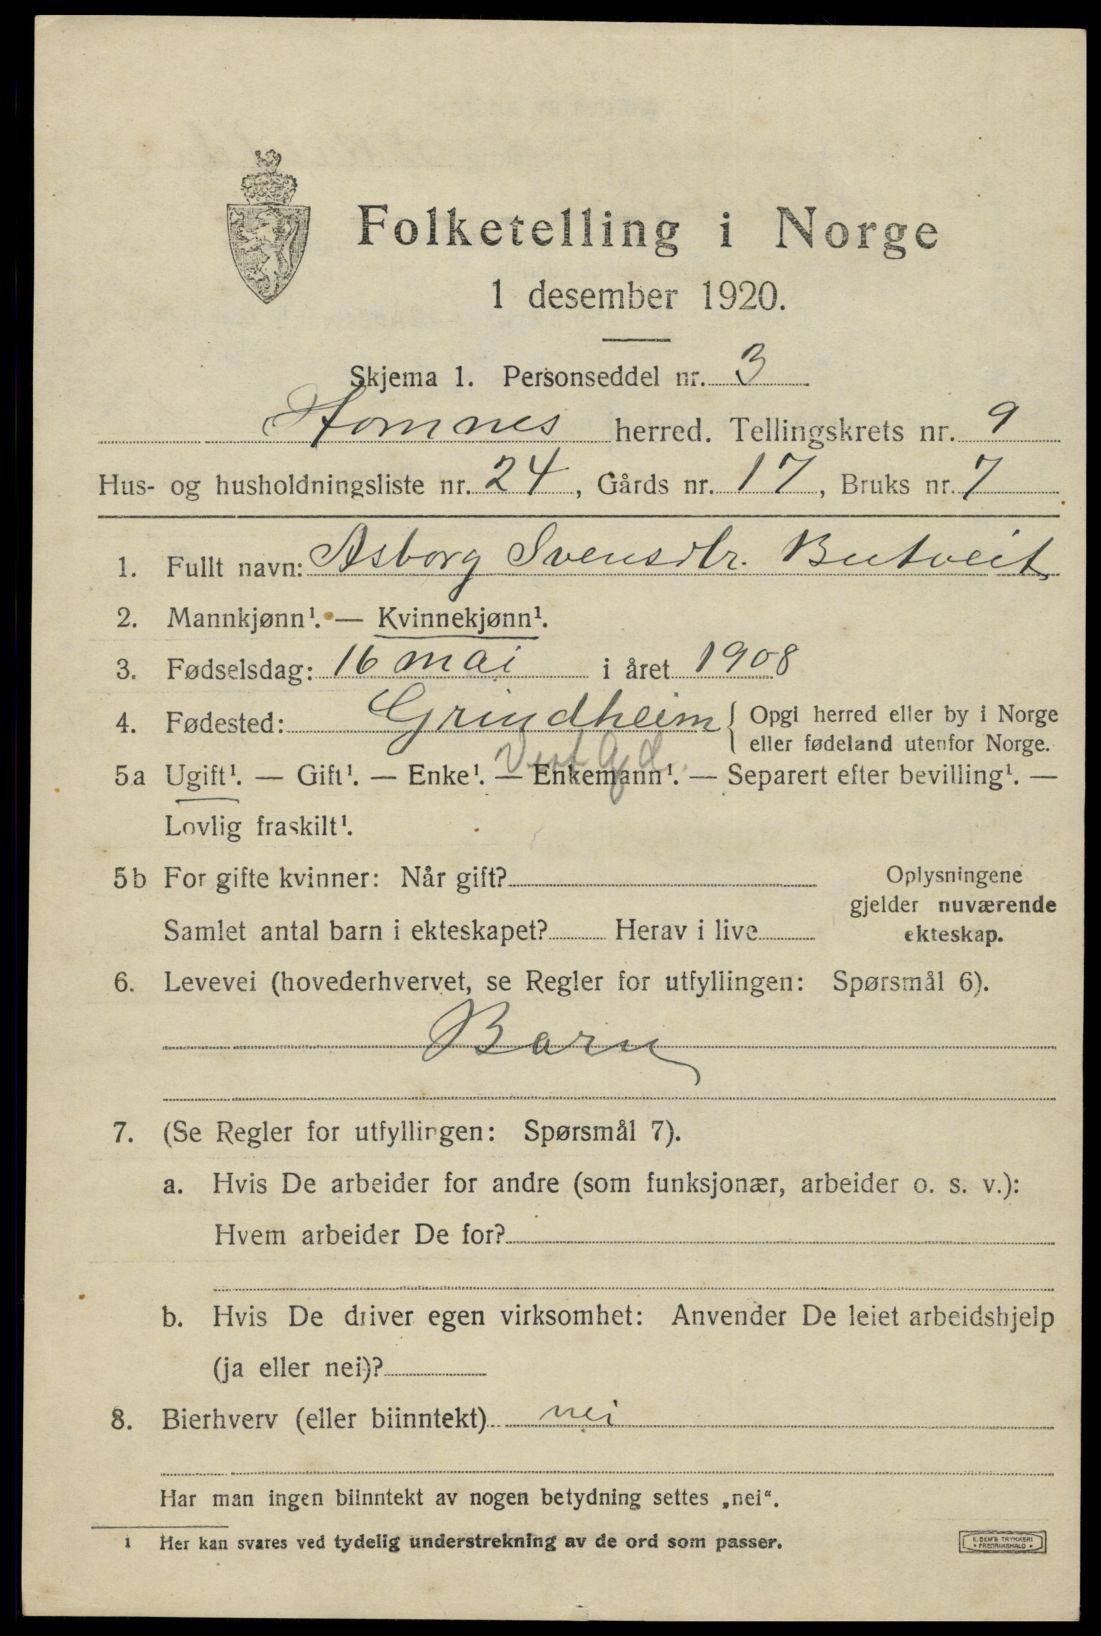 Folketelling i Norge
1 desember 1920.
Skjema 1. Personseddel nr. 3
Hornnes herred. Tellingskrets nr. 9
Hus- og husholdningsliste nr. 24, Gårds nr. 17, Bruks nr. 7
1. Fullt navn: Asborg Svensdtr. Butveit
2. Mannkjønn¹. — Kvinnekjønn¹.
3. Fødselsdag: 16 mai i året 1908
4. Fødested: Grindheim { Opgi herred eller by i Norge
eller fødeland utenfor Norge.
Vest Agd.
5a Ugift¹. — Gift¹. — Enke¹. — Enkemann¹. — Separert efter bevilling¹. —
Lovlig fraskilt¹.
5b For gifte kvinner: Når gift?
Samlet antal barn i ekteskapet? Herav i live
Oplysningene
gjelder nuværende
ekteskap.
6. Levevei (hovederhvervet, se Regler for utfyllingen: Spørsmål 6).
Barn
7. (Se Regler for utfyllingen: Spørsmål 7).
a. Hvis De arbeider for andre (som funksjonær, arbeider o. s. v.):
Hvem arbeider De for?
b. Hvis De driver egen virksomhet: Anvender De leiet arbeidshjelp
(ja eller nei)?
8. Bierhverv (eller biinntekt) nei
Har man ingen biinntekt av nogen betydning settes „nei“.
¹ Her kan svares ved tydelig understrekning av de ord som passer.
E. SEM'S TRYKKERI
• FREDRIKSHALD •